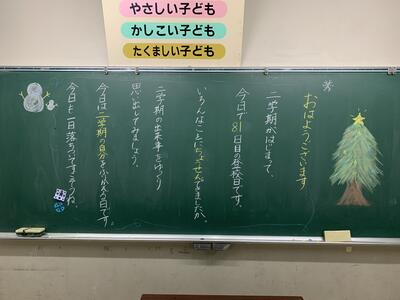 やさしい子ども
かしこい子ども
たくましい子ども
おはようございます
二学期がはじまって、
今日で81日目の登校日です。
いろんなことにちょうせんできましたか。
二学期の出来事をゆっくり
思い出してみましょう。
今日は二学期の自分をふりかえる日です。
今日も一日落ちついてすごそうね。